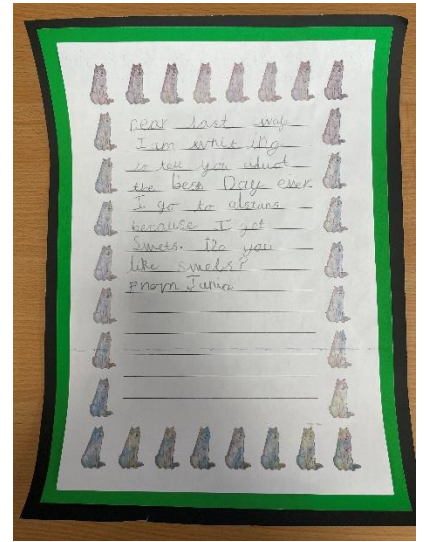 Dear last wolf
I am whiting
to tell you aduot
the best Day ever.
I go to
because I get
Swets. Do you
like swets?
From